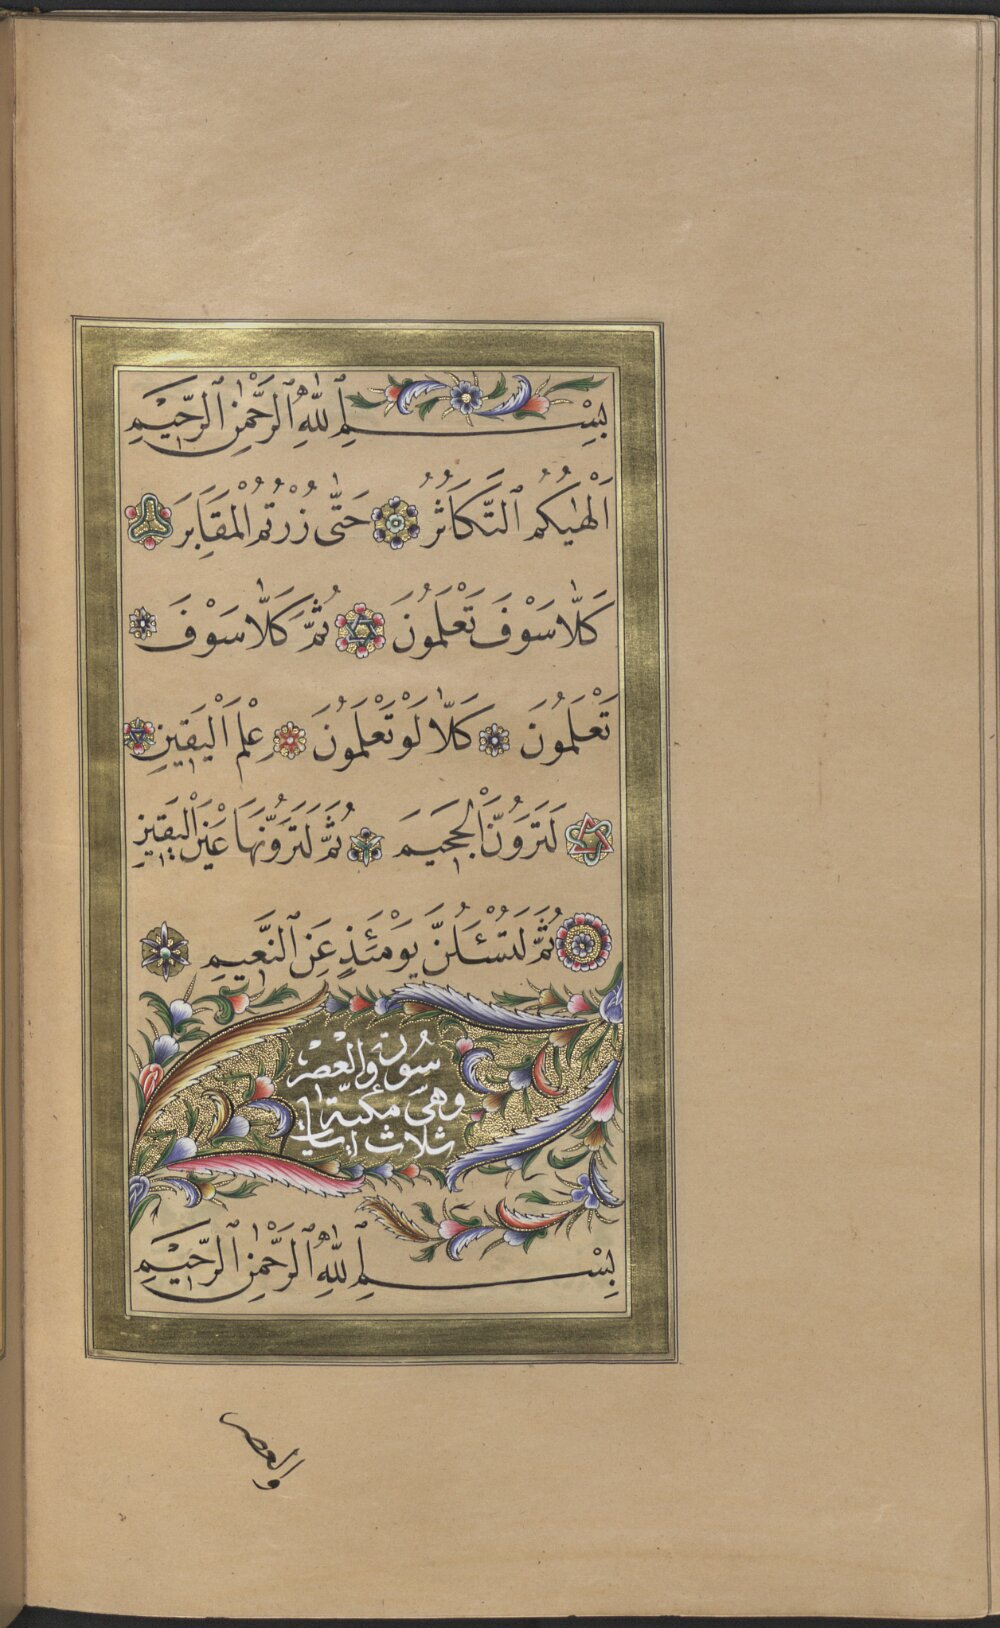 بِسْمِ ٱللّٰهِ ٱلرَّحْمٰنِ ٱلرَّحِيمِ
اَلْهٰيكُمُ ٱلتَّكَاثُرُ حَتّٰى زُرْتُمُ الْمَقَابِرَ
كَلَّا سَوْفَ تَعْلَمُونَ ثُمَّ كَلَّا سَوْفَ
تَعْلَمُونَ كَلَّا لَوْ تَعْلَمُونَ عِلْمَ الْيَقِينِ
لَتَرَوُنَّ الْجَحِيمَ ثُمَّ لَتَرَوُنَّهَا عَيْنَ الْيَقِينِ
ثُمَّ لَتُسْـَٔلُنَّ يَوْمَئِذٍ عَنِ ٱلنَّعِيمِ
سُورَة وَالْعَصْرِ
وَهِيَ مَكِّيَّة
ثلاث اٰيات
بِسْمِ ٱللّٰهِ ٱلرَّحْمٰنِ ٱلرَّحِيمِ
والعصر